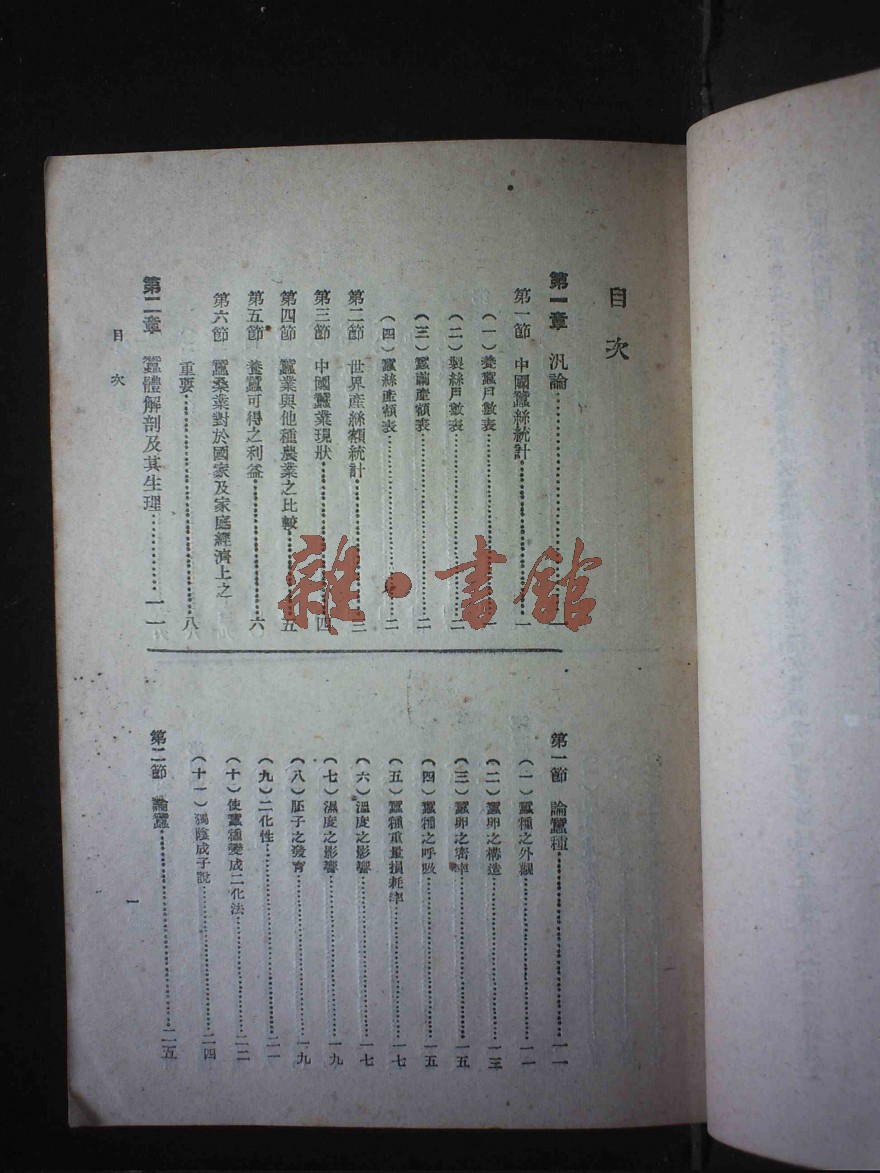 目次
第一章　汎論…………一
第一節　中國蠶絲統計…………一
（一）養蠶戶數表…………一
（二）製絲戶數表…………二
（三）蠶繭產額表…………二
（四）蠶絲產額表…………二
第二節　世界產絲額統計…………三
第三節　中國蠶業現狀…………四
第四節　蠶業與他種農業之比較…………五
第五節　養蠶可得之利益…………六
第六節　蠶桑業對於國家及家庭經濟上之
重要…………八
第二章　蠶體解剖及其生理…………一一
第一節　論蠶種…………一一
（一）蠶種之外觀…………一一
（二）蠶卵之構造…………一三
（三）蠶卵之密率…………一五
（四）蠶種之呼吸…………一五
（五）蠶種重量損耗率…………一七
（六）溫度之影響…………一七
（七）濕度之影響…………一九
（八）胚子之發育…………一九
（九）二化性…………二一
（十）使蠶種變成二化法…………二二
（十一）獨陰成子說…………二四
第二節　論蠶…………二五
目次
一
雜·書館